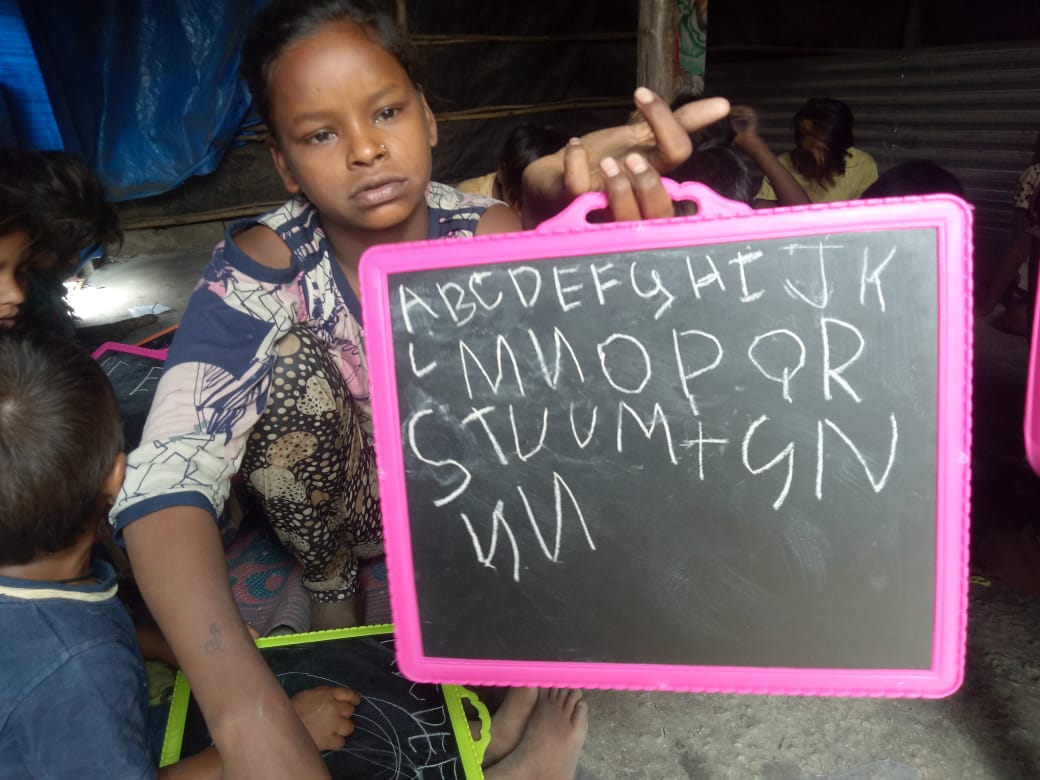 ABCDEFGHIJK
LMNOPQR
STUUM+GN
YN